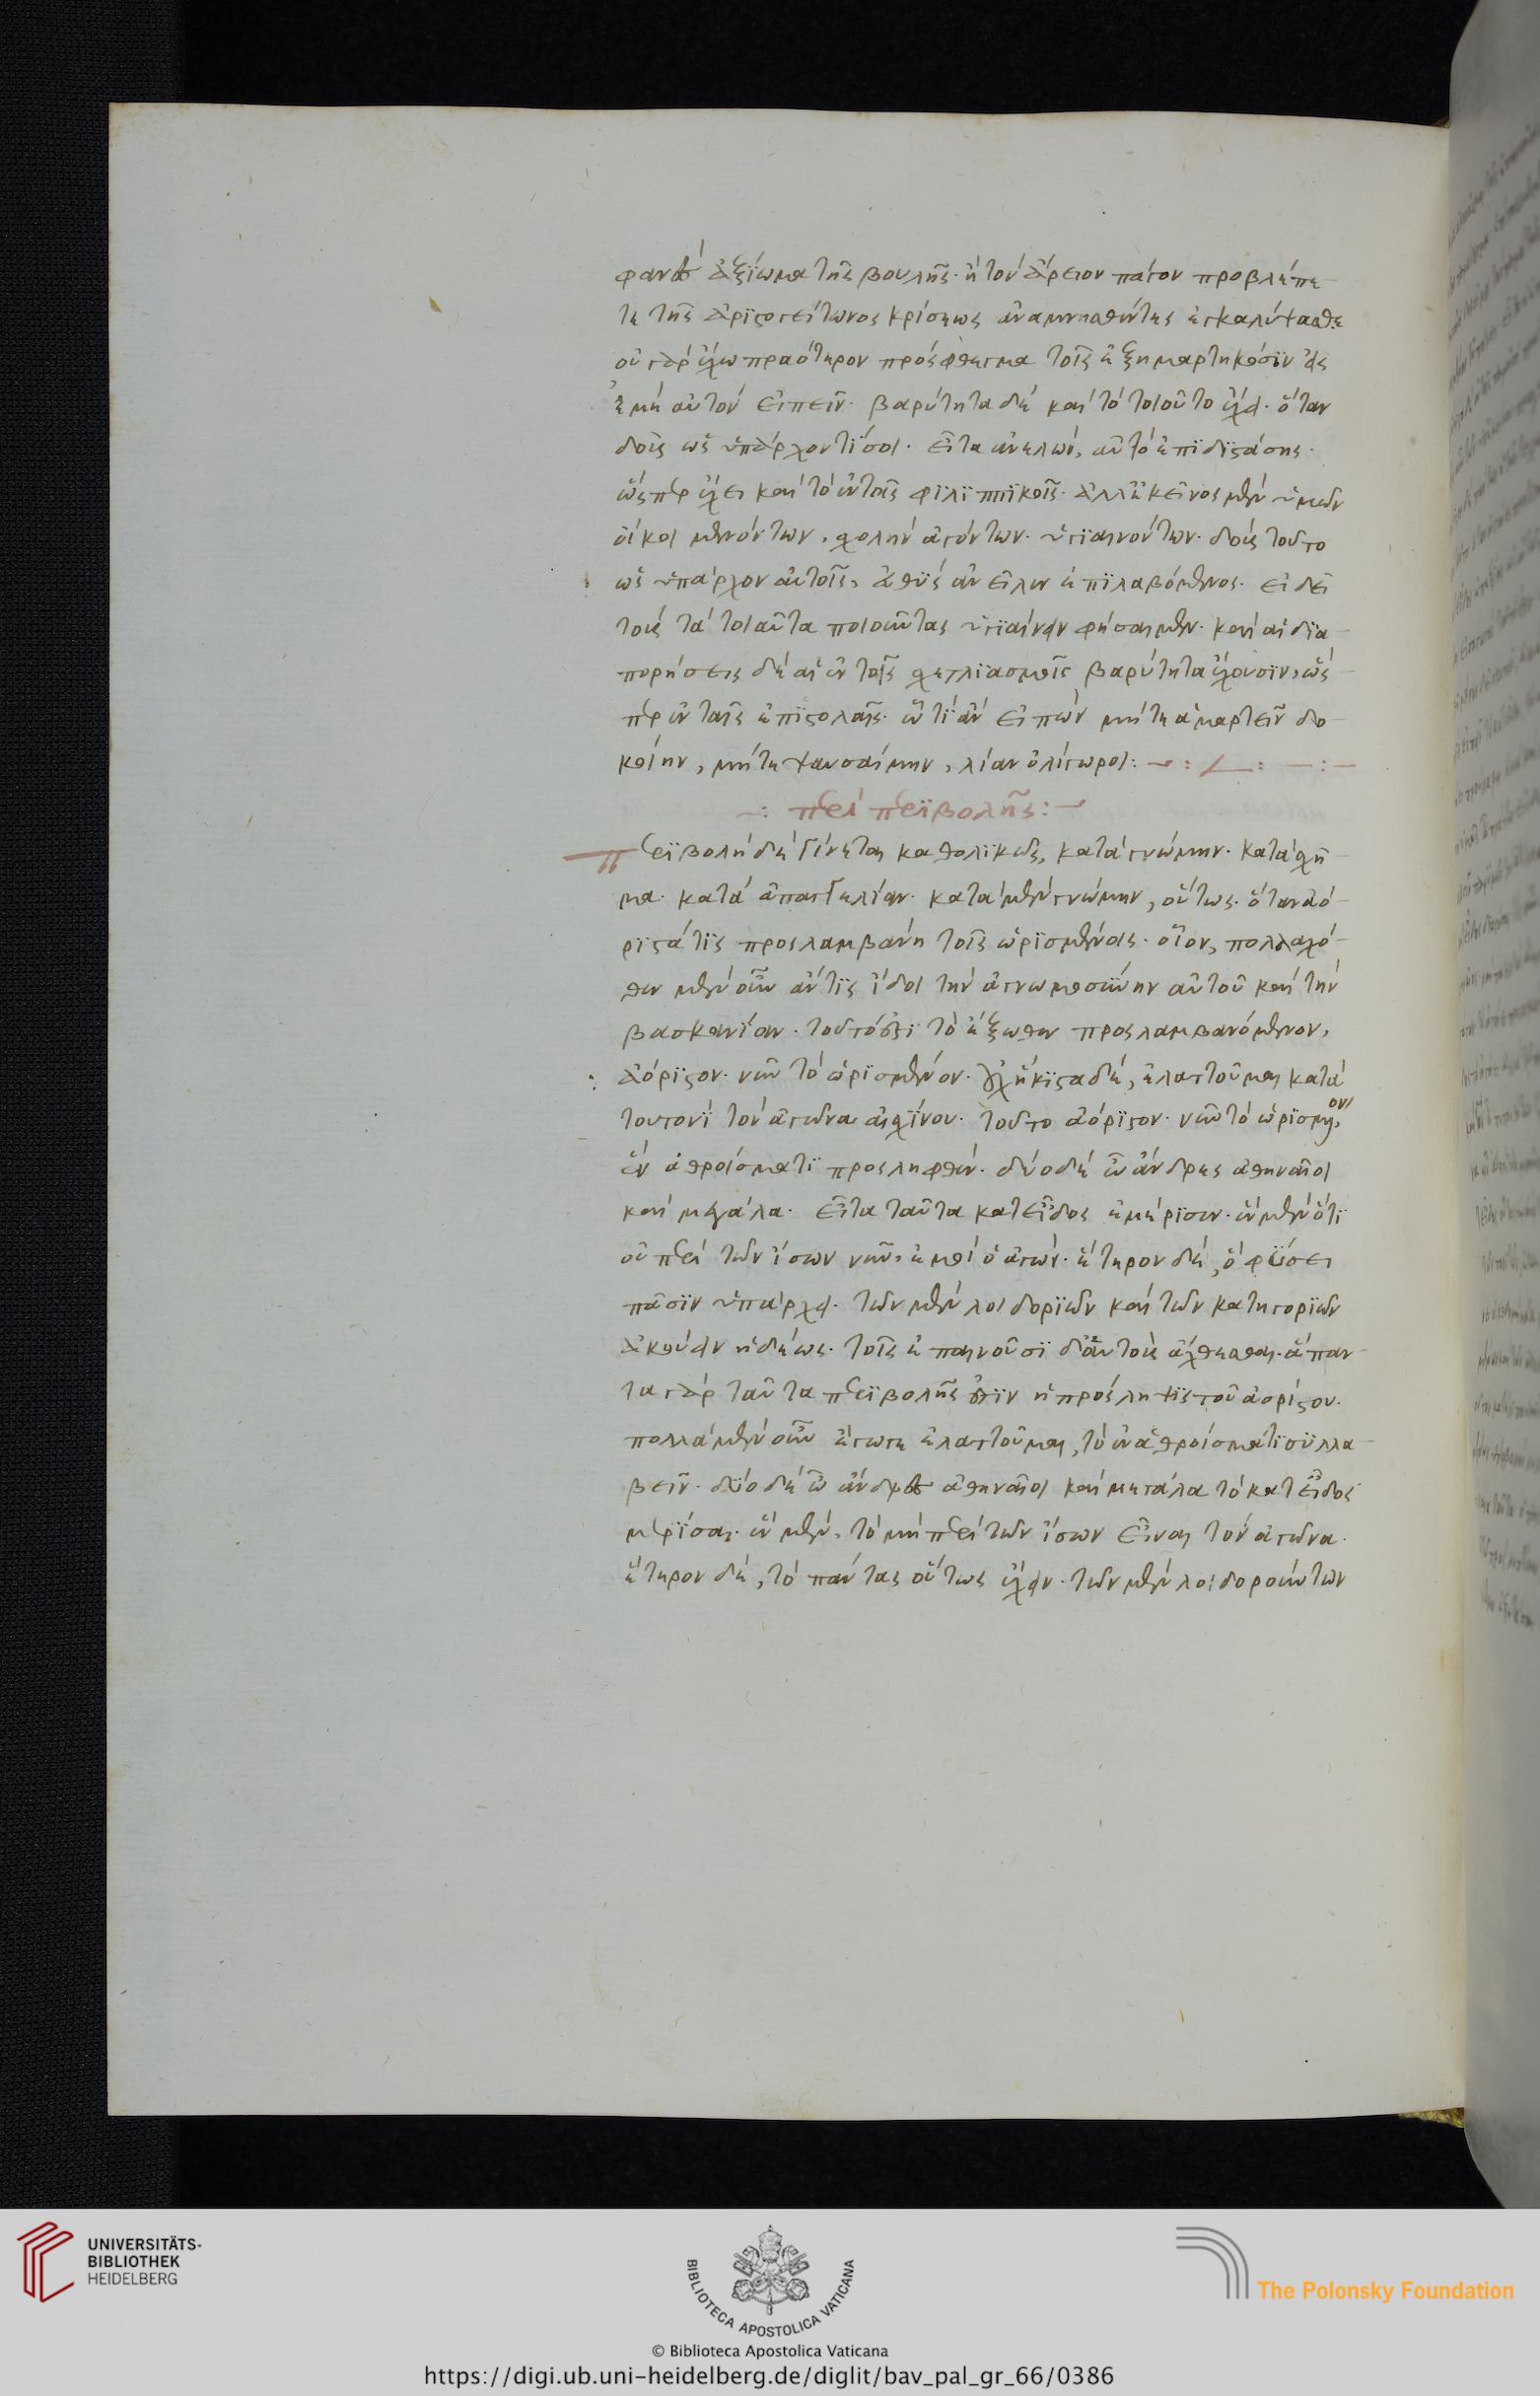 φαντες ἀξίωμα τῆς βουλῆς· ἢ τὸν ἄρειον πάγον προβλέπε-
τε τῆς ἀριστογείτωνος κρίσεως ἀναμνησθέντες ἐγκαλύψασθε
οὐ γὰρ ἔχω πραότερον πρόσφθεγμα τοῖς ἐξημαρτηκόσιν εἰς
ἐμὲ αὐτὸν εἰπεῖν· βαρύτητα δὲ καὶ τὸ τοιοῦτο ἔχει· ὅταν
δοὺς ὡς ὑπάρχον τί σοι· εἶτα ἀνελὼν, αὐτὸ ἐπιδιστάσῃς·
ὥσπερ ἔχει καὶ τὸ ἐν ταῖς φιλιππικοῖς· ἀλλ' ἐκεῖνος μὲν ὑμῶν
οἴκοι μενόντων, σχολὴν ἀγόντων· ὑγιαινόντων· δοὺς τοῦτο
ὡς ὑπάρχον αὐτοῖς, αὖθις ἀνεῖλεν ἐπιλαβόμενος· εἰ δεῖ
τοὺς τὰ τοιαῦτα ποιοῦντας ὑγιαίνειν φήσαιμεν· καὶ αἱ δια-
πορήσεις δὲ αἱ ἐν τοῖς σχετλιασμοῖς βαρύτητα ἔχουσιν, ὥσ-
περ ἐν ταῖς ἐπιστολαῖς· ὦ τί ἂν εἰπὼν μήτε ἁμαρτεῖν δο-
κοίην, μήτε ψευσαίμην, λίαν ὀλίγωροι:
περὶ περιβολῆς:
περιβολὴ δὲ γίνεται καθολικῶς, κατὰ γνώμην· κατὰ σχῆ-
μα· κατὰ ἀπαγγελίαν· κατὰ μὲν γνώμην, οὕτως· ὅταν ἀό-
ριστά τις προσλαμβάνῃ τοῖς ὡρισμένοις· οἷον, πολλαχό-
θεν μὲν οὖν ἄν τις ἴδοι τὴν ἀγνωμοσύνην αὐτοῦ καὶ τὴν
βασκανίαν· τοῦτό ἐστι τὸ ἔξωθεν προσλαμβανόμενον,
ἀόριστον· νῦν τὸ ὡρισμένον· οὐχ ἥκιστα δὲ, ἐλαττοῦμαι κατὰ
τουτονὶ τὸν ἀγῶνα αἰσχίνου· τοῦτο ἀόριστον· νῦν τὸ ὡρισμένον,
ἐν ἀθροίσματι προσληφθέν· δύο δὲ ὦ ἄνδρες ἀθηναῖοι
καὶ μεγάλα· εἶτα ταῦτα κατεῖδος ἐμέρισεν· ἓν μὲν ὅτι
οὐ περὶ τῶν ἴσων νῦν, ἐμοὶ ὁ ἀγών· ἕτερον δὲ, ὃ φύσει
πᾶσιν ὑπάρχει· τῶν μὲν λοιδοριῶν καὶ τῶν κατηγοριῶν
ἀκούειν ἡδέως· τοῖς ἐπαινοῦσι δ' αὑτοὺς ἄχθεσθαι· ἅπαν-
τα γὰρ ταῦτα περιβολῆς ἐστιν ἡ πρόσληψις τοῦ ἀορίστου·
πολλὰ μὲν οὖν ἔγωγε ἐλαττοῦμαι, τὸ ἐν ἀθροίσματι συλλα-
βεῖν· δύο δὲ ὦ ἄνδρες ἀθηναῖοι καὶ μεγάλα τὸ κατεῖδος
μερίσαι· ἓν μὲν, τὸ μὴ περὶ τῶν ἴσων εἶναι τὸν ἀγῶνα·
ἕτερον δὲ, τὸ πάντας οὕτως ἔχειν· τῶν μὲν λοιδορούντων
UNIVERSITÄTS-
BIBLIOTHEK
HEIDELBERG
BIBLIOTECA APOSTOLICA VATICANA
The Polonsky Foundation
© Biblioteca Apostolica Vaticana
https://digi.ub.uni-heidelberg.de/diglit/bav_pal_gr_66/0386